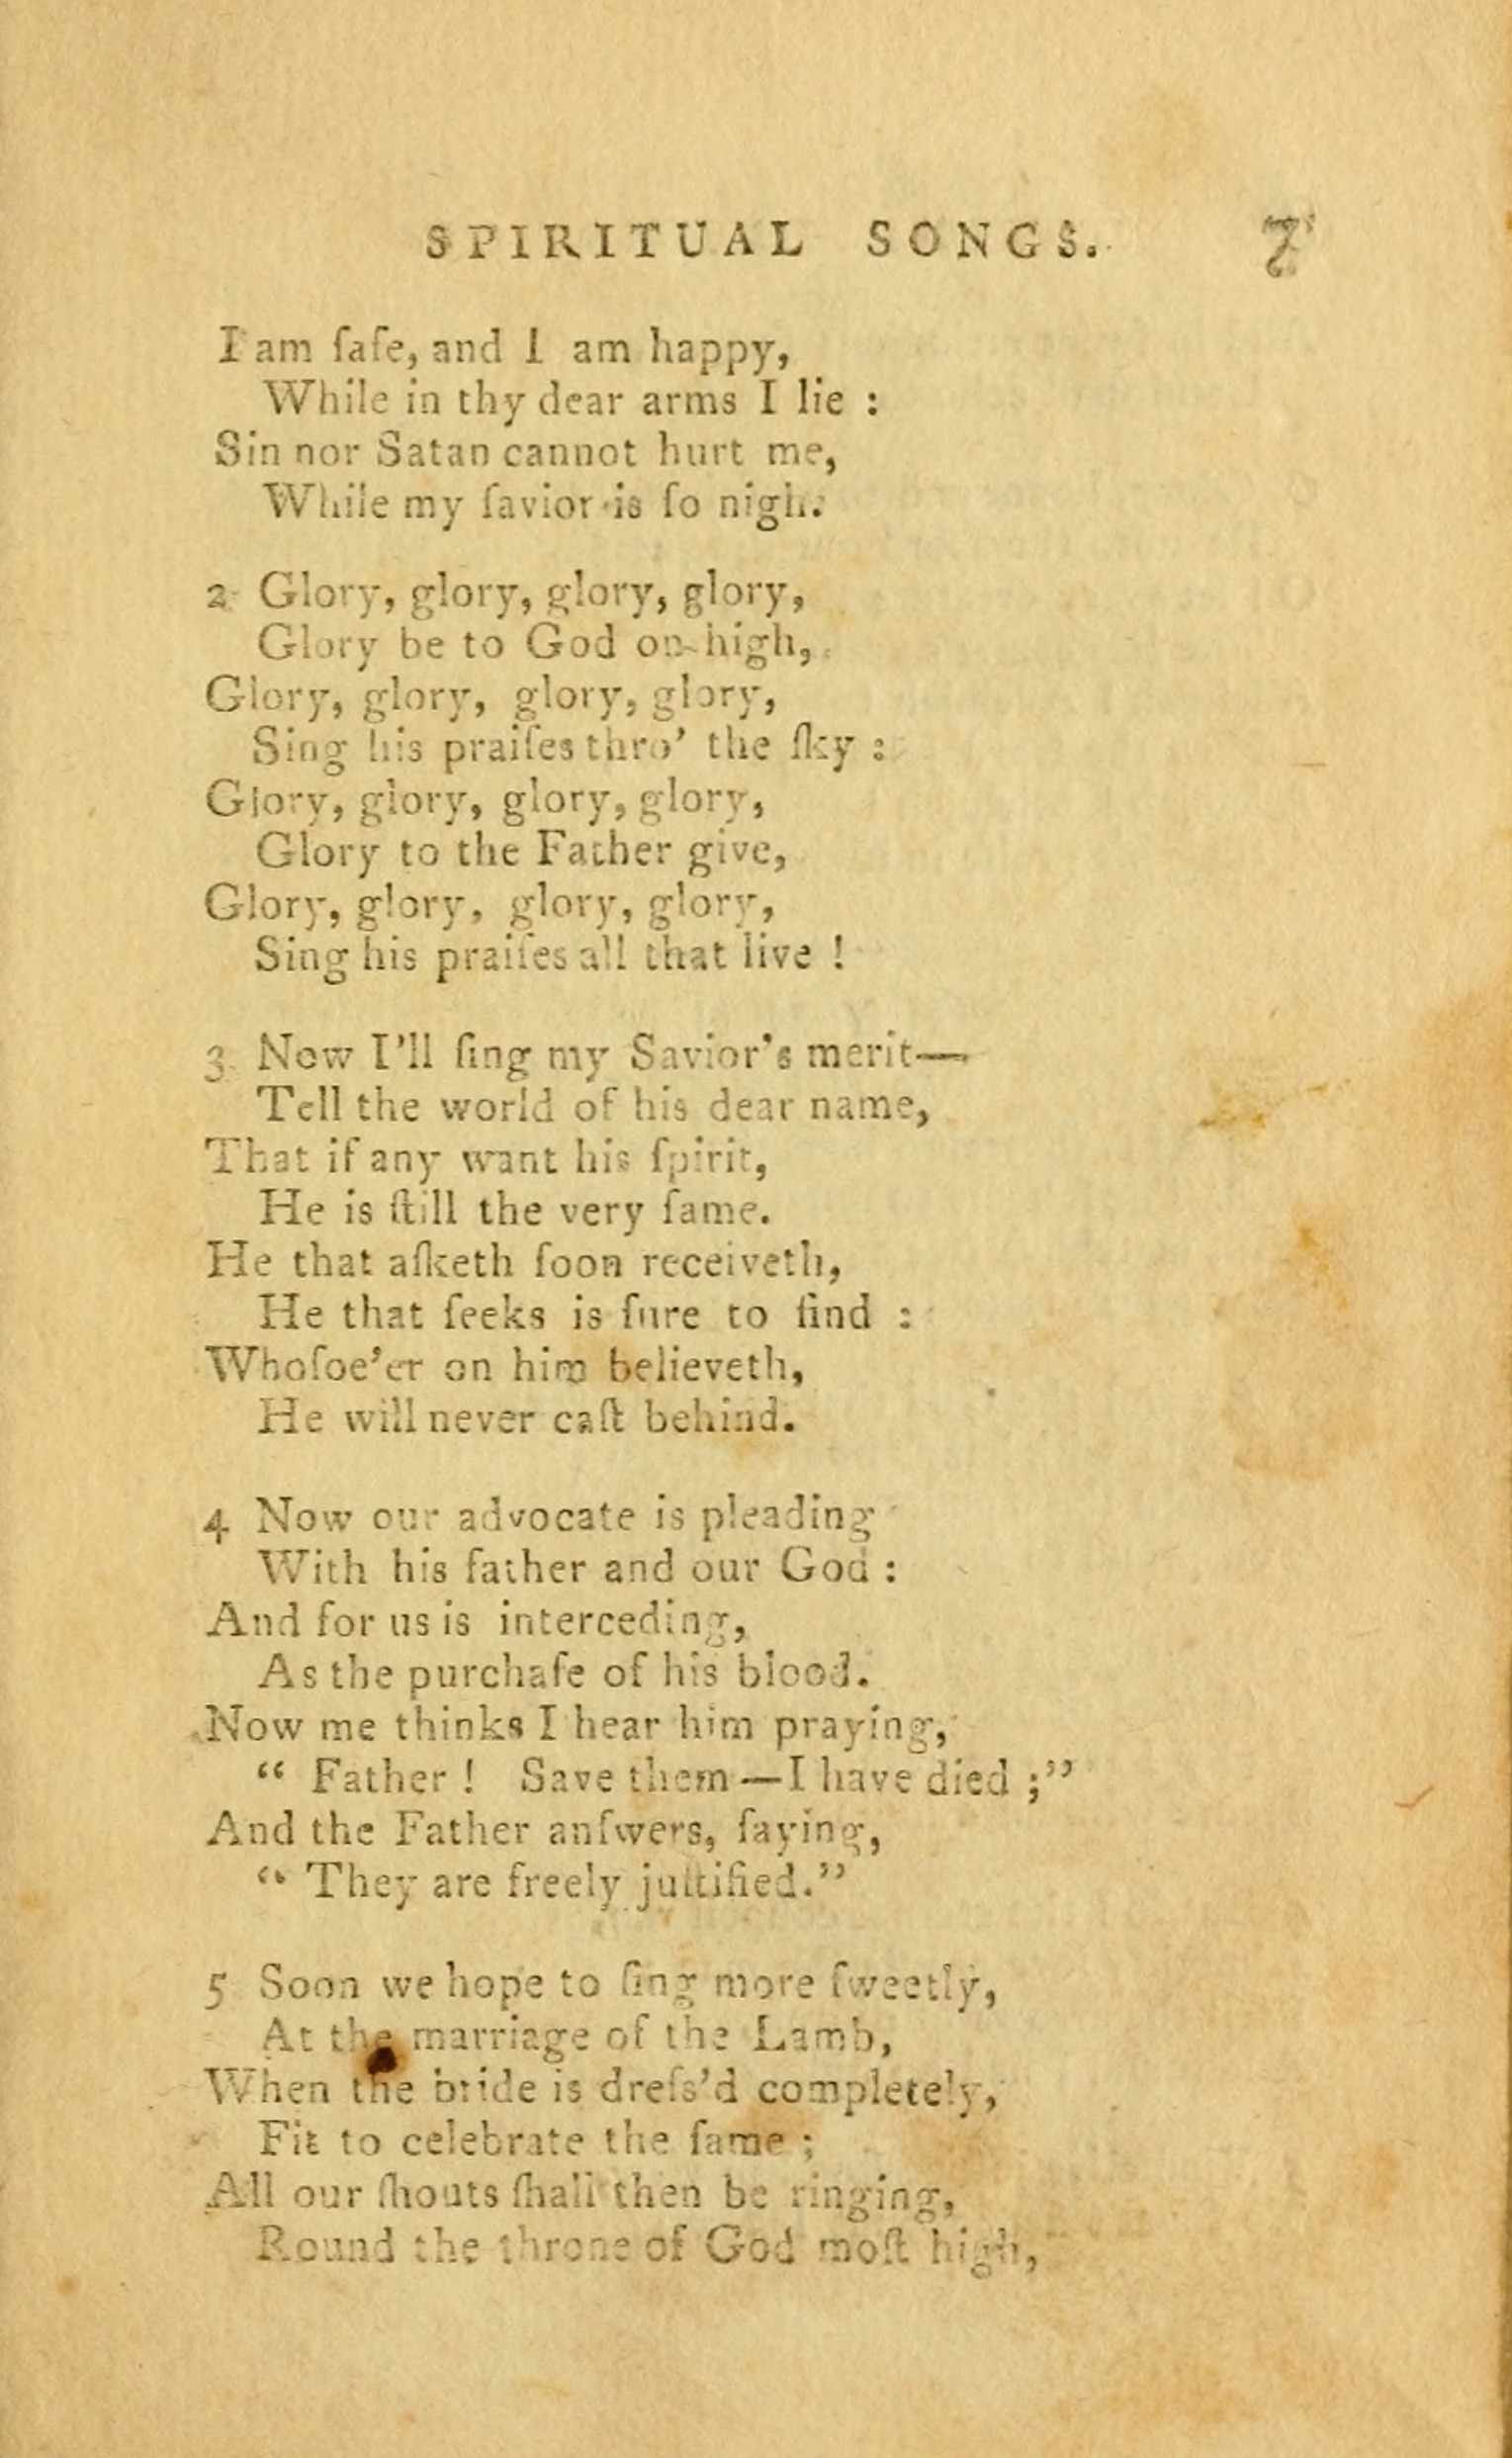 SPIRITUAL SONGS. 7
I am ſafe, and I am happy,
While in thy dear arms I lie :
Sin nor Satan cannot hurt me,
While my ſavior is ſo nigh.
2 Glory, glory, glory, glory,
Glory be to God on high,
Glory, glory, glory, glory,
Sing his praiſes thro' the ſky :
Glory, glory, glory, glory,
Glory to the Father give,
Glory, glory, glory, glory,
Sing his praiſes all that live !
3 Now I'll ſing my Savior's merit—
Tell the world of his dear name,
That if any want his ſpirit,
He is ſtill the very ſame.
He that aſketh ſoon receiveth,
He that ſeeks is ſure to find :
Whoſoe'er on him believeth,
He will never caſt behind.
4 Now our advocate is pleading
With his father and our God :
And for us is interceding,
As the purchaſe of his blood.
Now me thinks I hear him praying,
“ Father ! Save them—I have died ;”
And the Father anſwers, ſaying,
“ They are freely juſtified.”
5 Soon we hope to ſing more ſweetly,
At the marriage of the Lamb,
When the bride is dreſs'd completely,
Fit to celebrate the ſame ;
All our ſhouts ſhall then be ringing,
Round the throne of God moſt high,